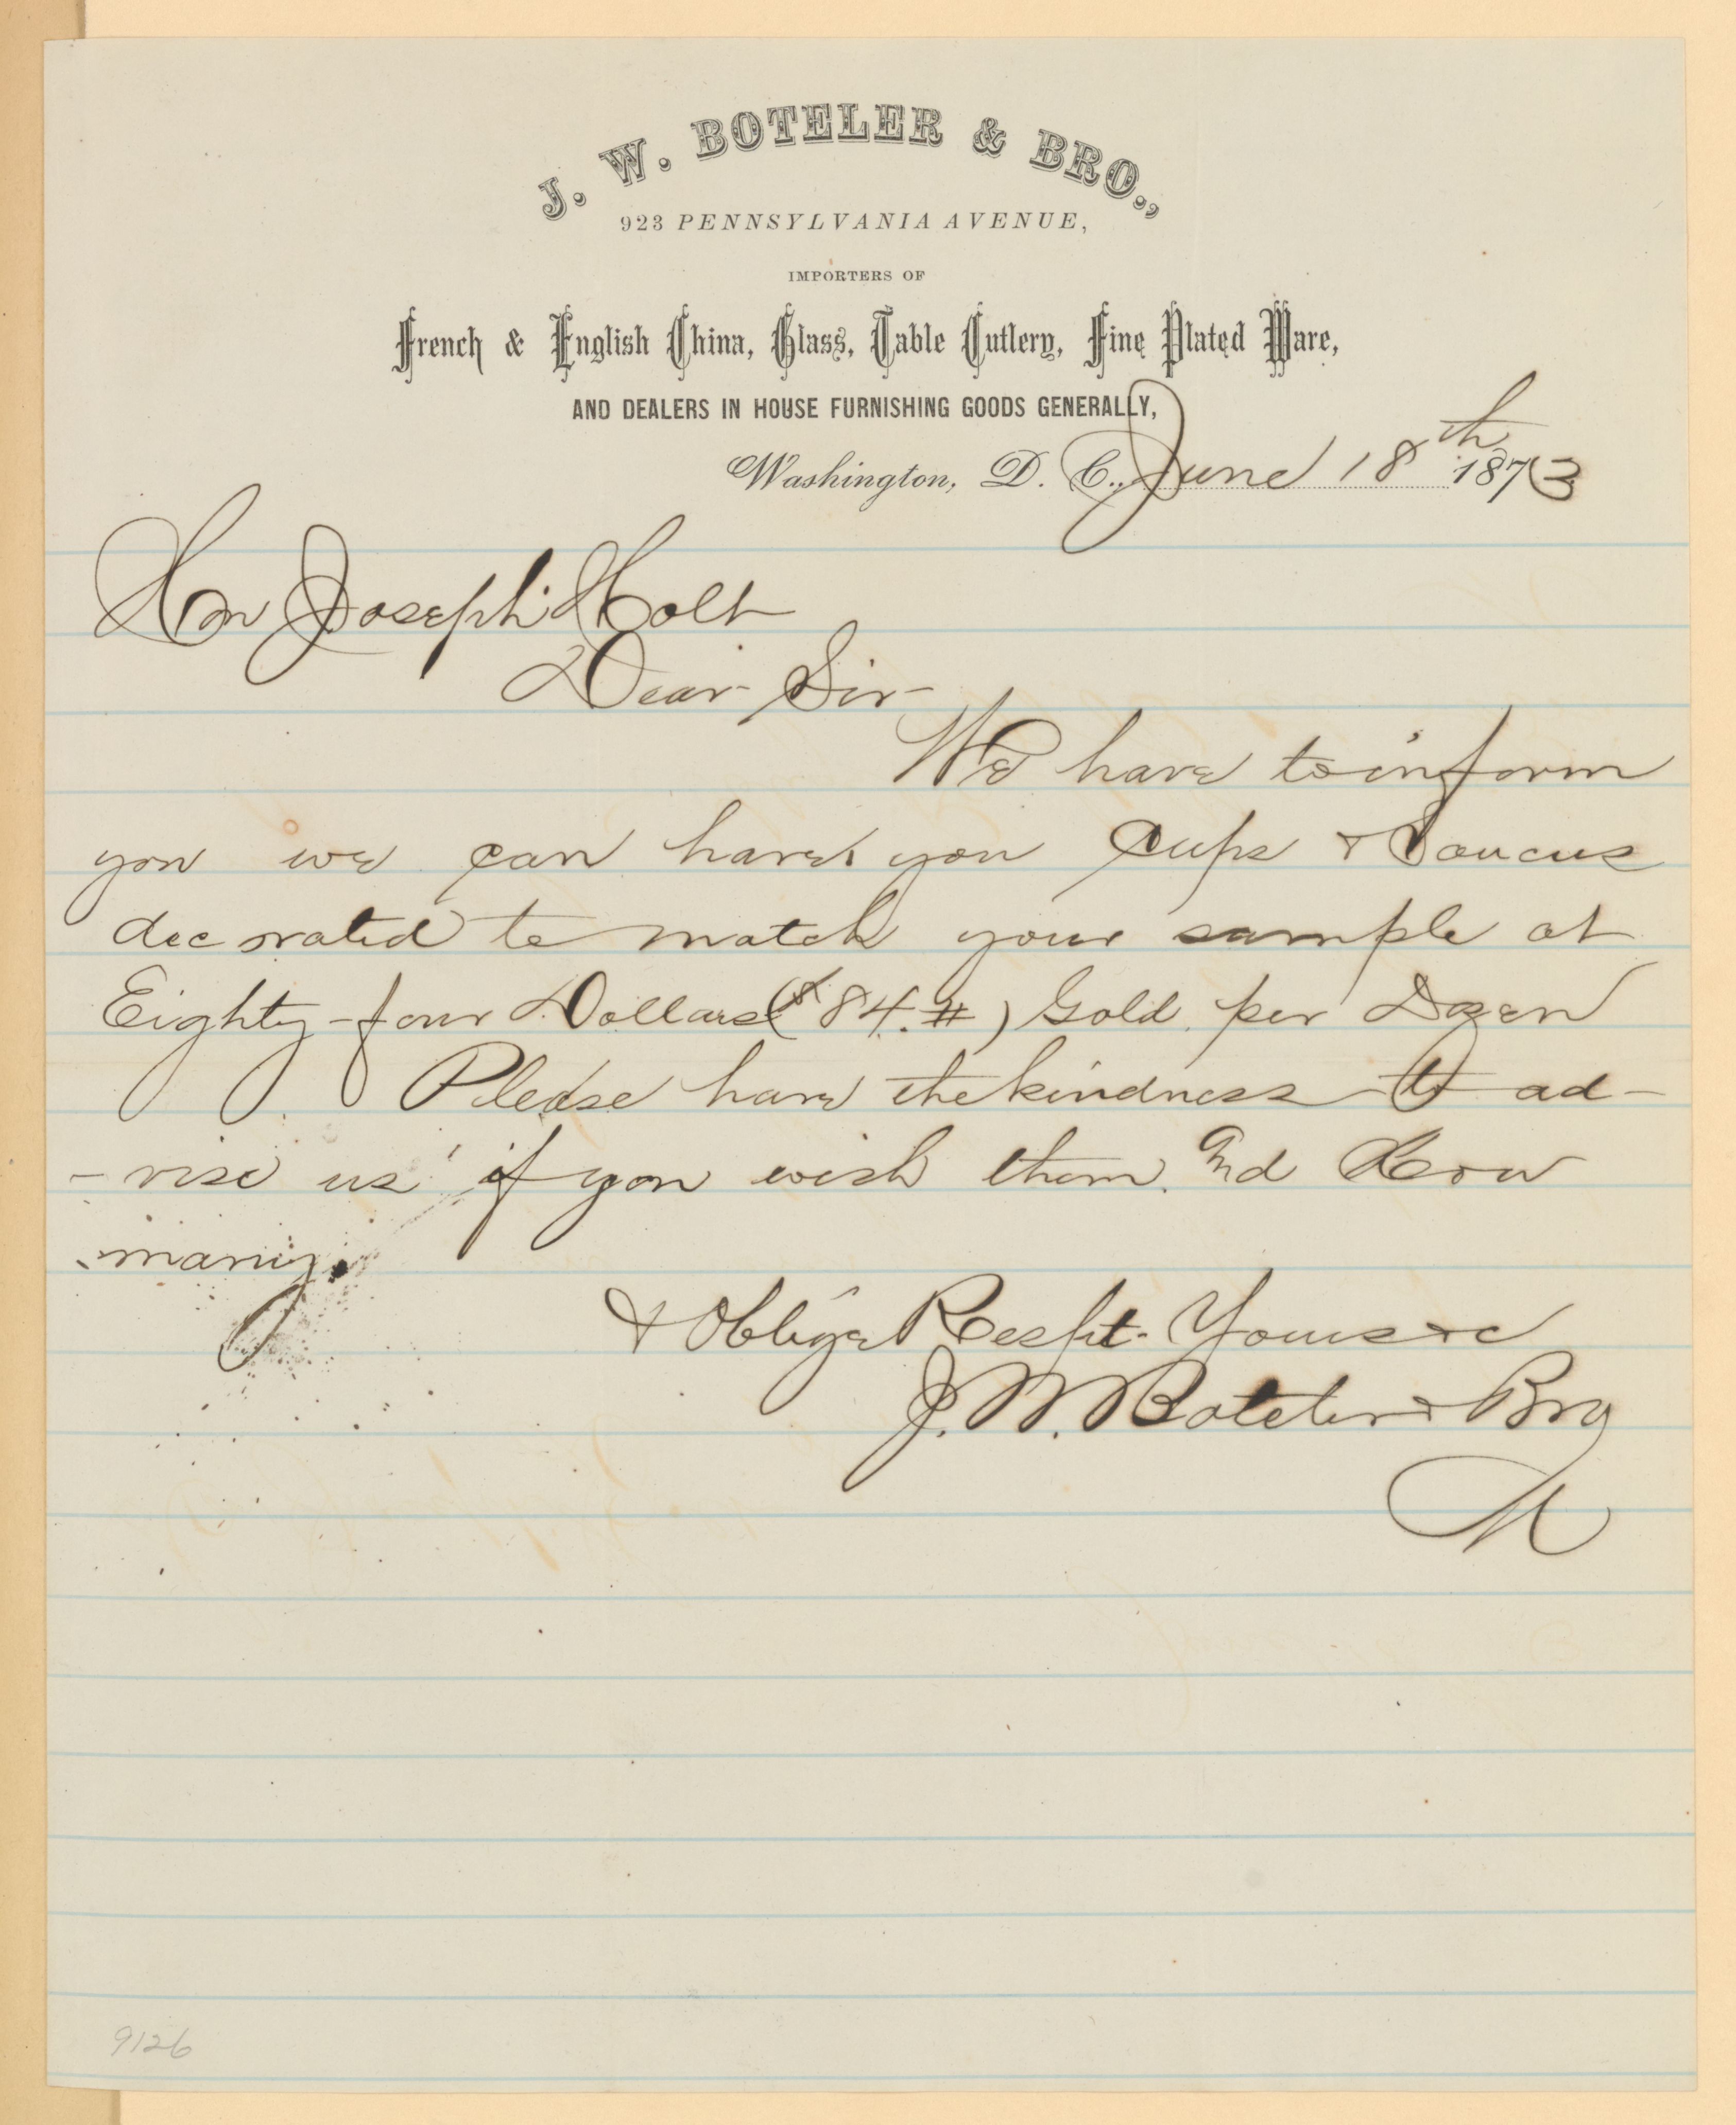 J. W. BOTELER & BRO.,
923 PENNSYLVANIA AVENUE,
IMPORTERS OF
French & English China, Glass, Table Cutlery, Fine Plated Ware,
AND DEALERS IN HOUSE FURNISHING GOODS GENERALLY,
Washington, D. C., June 18th 1873
Hon Joseph Holt
Dear Sir
We have to inform
you we can have you Cups & Saucers
decorated to match your sample at
Eighty-four Dollars ($84.#) Gold per Dozen
Please have the kindness to ad-
-vise us if you wish them. And How
many.
& Oblige Respt. Yours &c
J. W. Boteler & Bro
M
9126